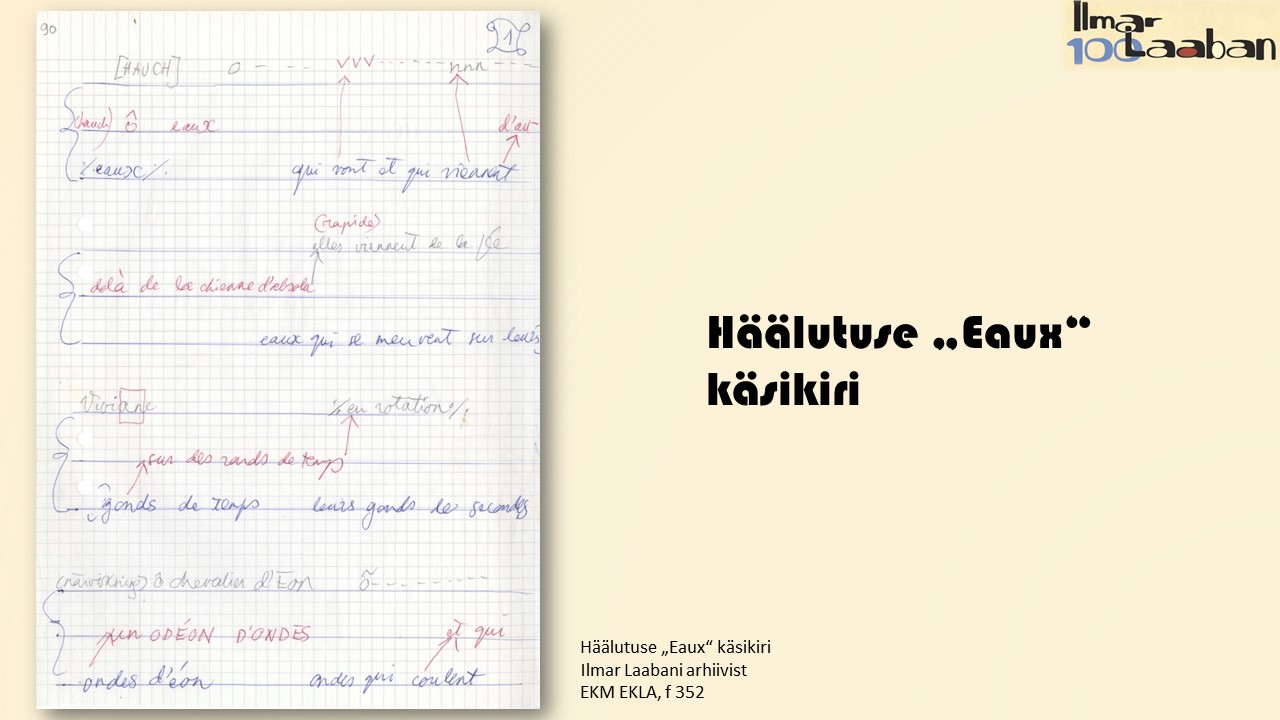 90
1
[HAUCH] o - - - - vvv - - - - - - nnn - - - -
ô eaux d'au-
·/. eaux ·/. qui vont et qui viennent
(rapide)
elles viennent de la
delà de la chienne d'absolu
eaux qui se meuvent sur leurs
Viviane ·/. en rotation ·/.
sur des ronds de temps
gonds de temps leurs gonds de secondes
ô chevalier d'Éon õ - - - - - - - -
un ODÉON D'ONDES et qui
ondes d'éon ondes qui coulent
Ilmar
100 Laaban
Häälutuse „Eaux“
käsikiri
Häälutuse „Eaux“ käsikiri
Ilmar Laabani arhiivist
EKM EKLA, f 352